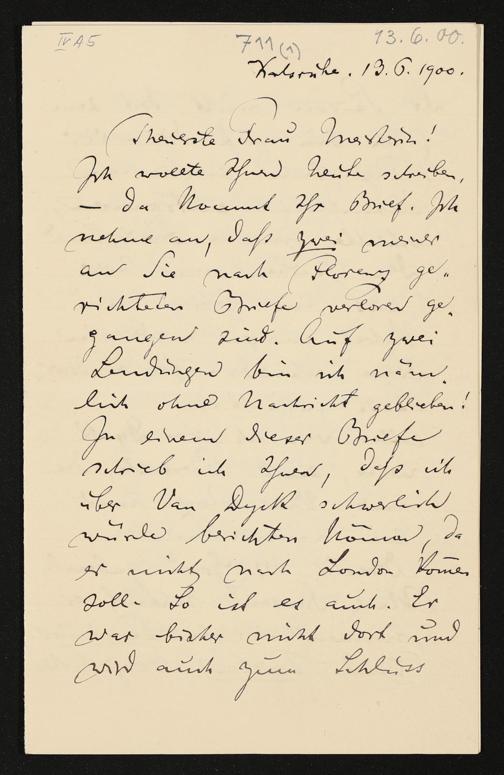 IV A5
711 (1)
13.6.00.
Karlsruhe. 13. 6. 1900.
Theuerste Frau Meisterin!
Ich wollte Ihnen heute schreiben,
– da kommt Ihr Brief. Ich
nehme an, daſs zwei meiner
an Sie nach Florenz ge„
richteten Briefe verloren ge„
gangen sind. Auf zwei
Sendungen bin ich näm„
lich ohne Nachricht geblieben!
In einem dieser Briefe
schrieb ich Ihnen, daſs ich
über Van Dyck schwerlich
würde berichten können, da
er nicht nach London kom̄en
soll. So ist es auch. Er
war bisher nicht dort und
wird auch zum Schluss